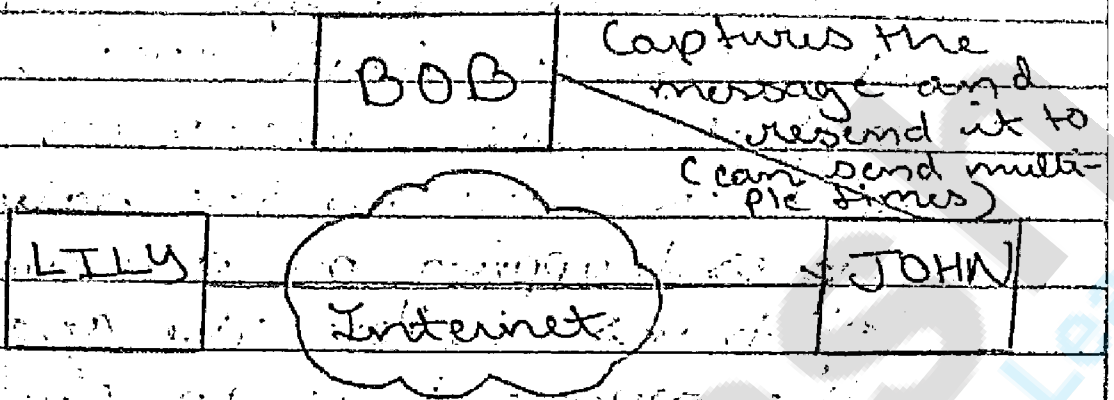 BOB
Captures the
message and
resend it to
(can send multi-
ple times)
LILY
Internet
JOHN